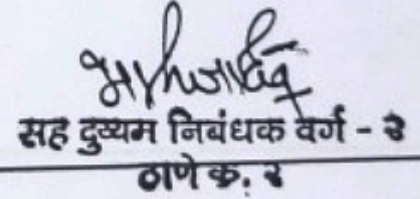 सह दुय्यम निबंधक वर्ग - २
ठाणे क्र. २